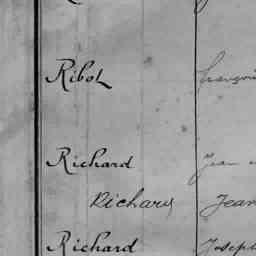 Ribot
Richard Jean
Richard Jean
Richard Joseph